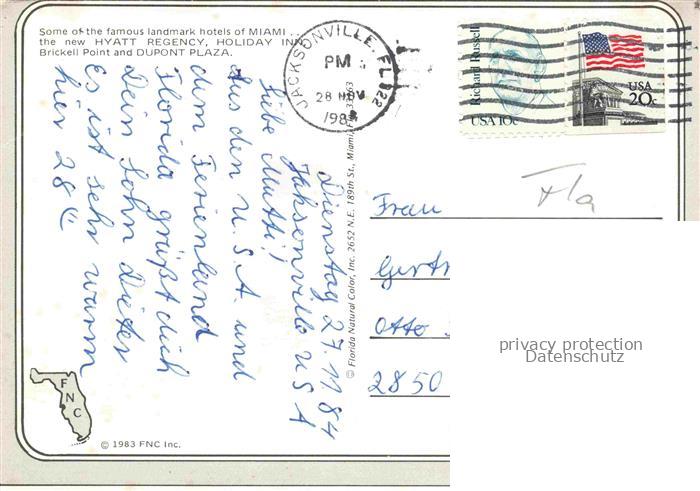 Some of the famous landmark hotels of MIAMI . . .
the new HYATT REGENCY, HOLIDAY INN
Brickell Point and DUPONT PLAZA.
JACKSONVILLE, FL 322
PM
28 NOV
198
Richard Russell
USA 10c
USA
20c
Fla
Dienstag 27.11 84
Jaksonville USA
Liebe Mutti!
Aus den U.S.A. und
dem Ferienland
Florida grüßt dich
Dein Sohn Dieter
Es ist sehr warm
hier 28°C
© Florida Natural Color, Inc. 2652 N.E. 189th St., Miami,
Frau
Gertr
Otto
2850
privacy protection
Datenschutz
FNC
© 1983 FNC Inc.